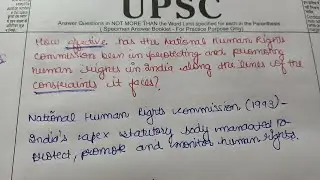 UPSC
Answer Questions in NOT MORE THAN the Word Limit specified for each in the Parenthesis
( Specimen Answer Booklet - For Practice Purpose Only )
How effective has the National Human Rights
Commission been in protecting and promoting
human rights in India along the lines of the
constraints it faces?
National Human Rights Commission (1993)-
India's apex statutory body mandated to
protect, promote and monitor human rights.